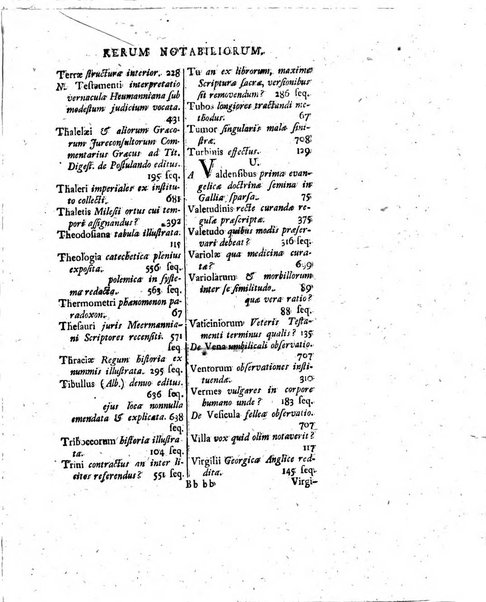 RERUM NOTABILIORUM.
Terræ structuræ interior. 228
N. Testamenti interpretatio
vernacula Heumaniana sub
modestum judicium vocata.
431
Thalelæi & aliorum Græco-
rum Jureconsultorum Com-
mentarius Græcus ad Tit.
Digest. de Postulando editus.
195 seq.
Thaleri imperiales ex institu-
to collecti. 681
Thaletis Milesii ortus cui tem-
pori assignandus? 392
Theodosiana tabula illustrata.
115
Theologia catechetica plenius
exposita. 556 seq.
polemica in syste-
ma redacta. 563 seq.
Thermometri phænomenon pa-
radoxon. 67
Thesauri juris Meermannia-
ni Scriptores recensiti. 571
seq.
Thraciæ Regum historia ex
nummis illustrata. 155 seq.
Tibullus (Alb.) denuo editus.
636 seq.
ejus loca nonnulla
emendata & explicata. 638
seq.
Tribocorum historia illustra-
ta. 104 seq.
Trini contractus an inter li-
citos referendus? 551 seq.
Tu an ex librorum, maxime
Scripturæ sacræ, versionibus
sit removendum? 286 seq.
Tubos longiores tractundi me-
thodus. 67
Tumor singularis malæ sini-
stræ. 708
Turbinis effectus. 129
V U.
A Valdensibus prima evan-
gelicæ doctrinæ semina in
Gallia sparsa. 75
Valetudinis recte curandæ re-
gulæ præscriptæ. 375
Valetudo quibus modis præser-
vari debeat? 316 seq.
Variolæ qua medicina cura-
tæ? 699
Variolarum & morbillorum
inter se similitudo. 89
quæ vera ratio?
88 seq.
Vaticiniorum Veteris Testa-
menti terminus qualis? 135
De Vena umbilicali observatio.
707
Ventorum observationes insti-
tuendæ. 310
Vermes vulgares in corpore
humano unde? 183 seq.
De Vesicula felleæ observatio.
707
Villa vox quid olim notaverit?
117
Virgilii Georgica Anglice red-
dita. 145 seq.
Bb bb Virgi-